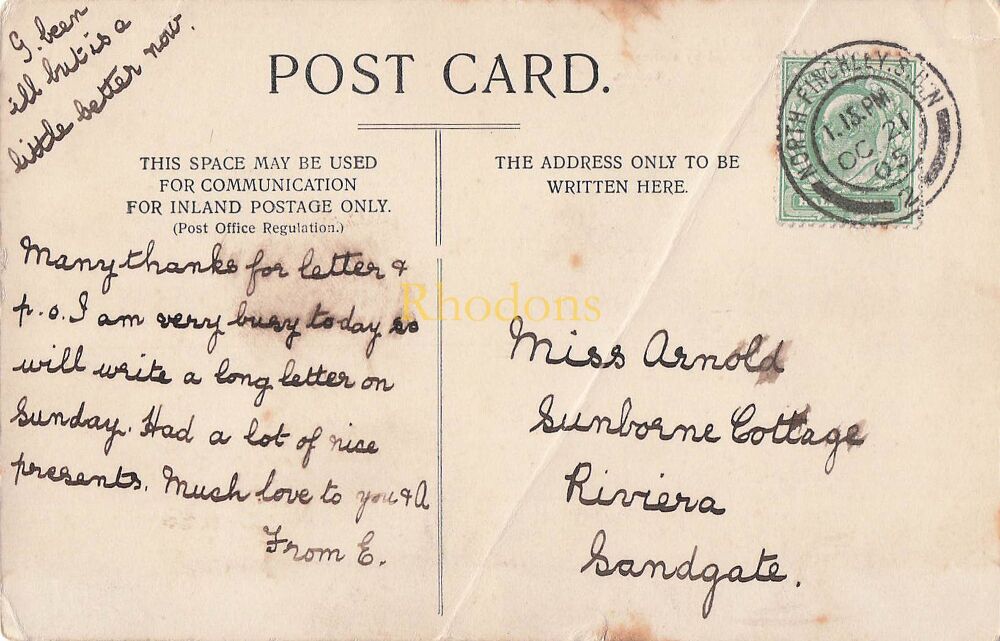 G. been
ill but is a
little better now.
POST CARD.
THIS SPACE MAY BE USED
FOR COMMUNICATION
FOR INLAND POSTAGE ONLY.
(Post Office Regulation.)
THE ADDRESS ONLY TO BE
WRITTEN HERE.
NORTH FINCHLEY. S.O.N
1.15 PM
OC 21
05
2
Many thanks for letter &
p.o. I am very busy today so
will write a long letter on
Sunday. Had a lot of nice
presents. Much love to you & A
From E.
Rhodons
Miss Arnold
Sunborne Cottage
Riviera
Sandgate.